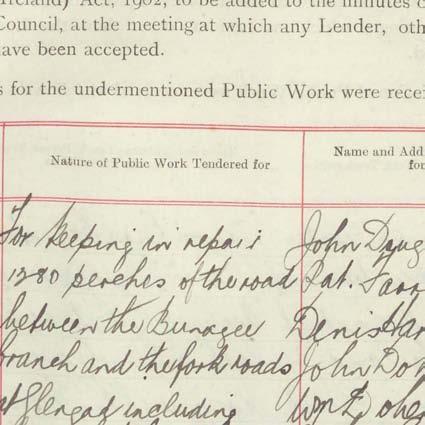 Ireland) Act, 1902, to be added to the minutes o
Council, at the meeting at which any Lender, oth
have been accepted.
s for the undermentioned Public Work were recei
Nature of Public Work Tendered for
Name and Add
for
For keeping in repair
1280 perches of the road
between the Bunagee
branch and the fork roads
at Glengad including
John Doug
Pat. Farr
Denis Har
John Do
Wm Doher